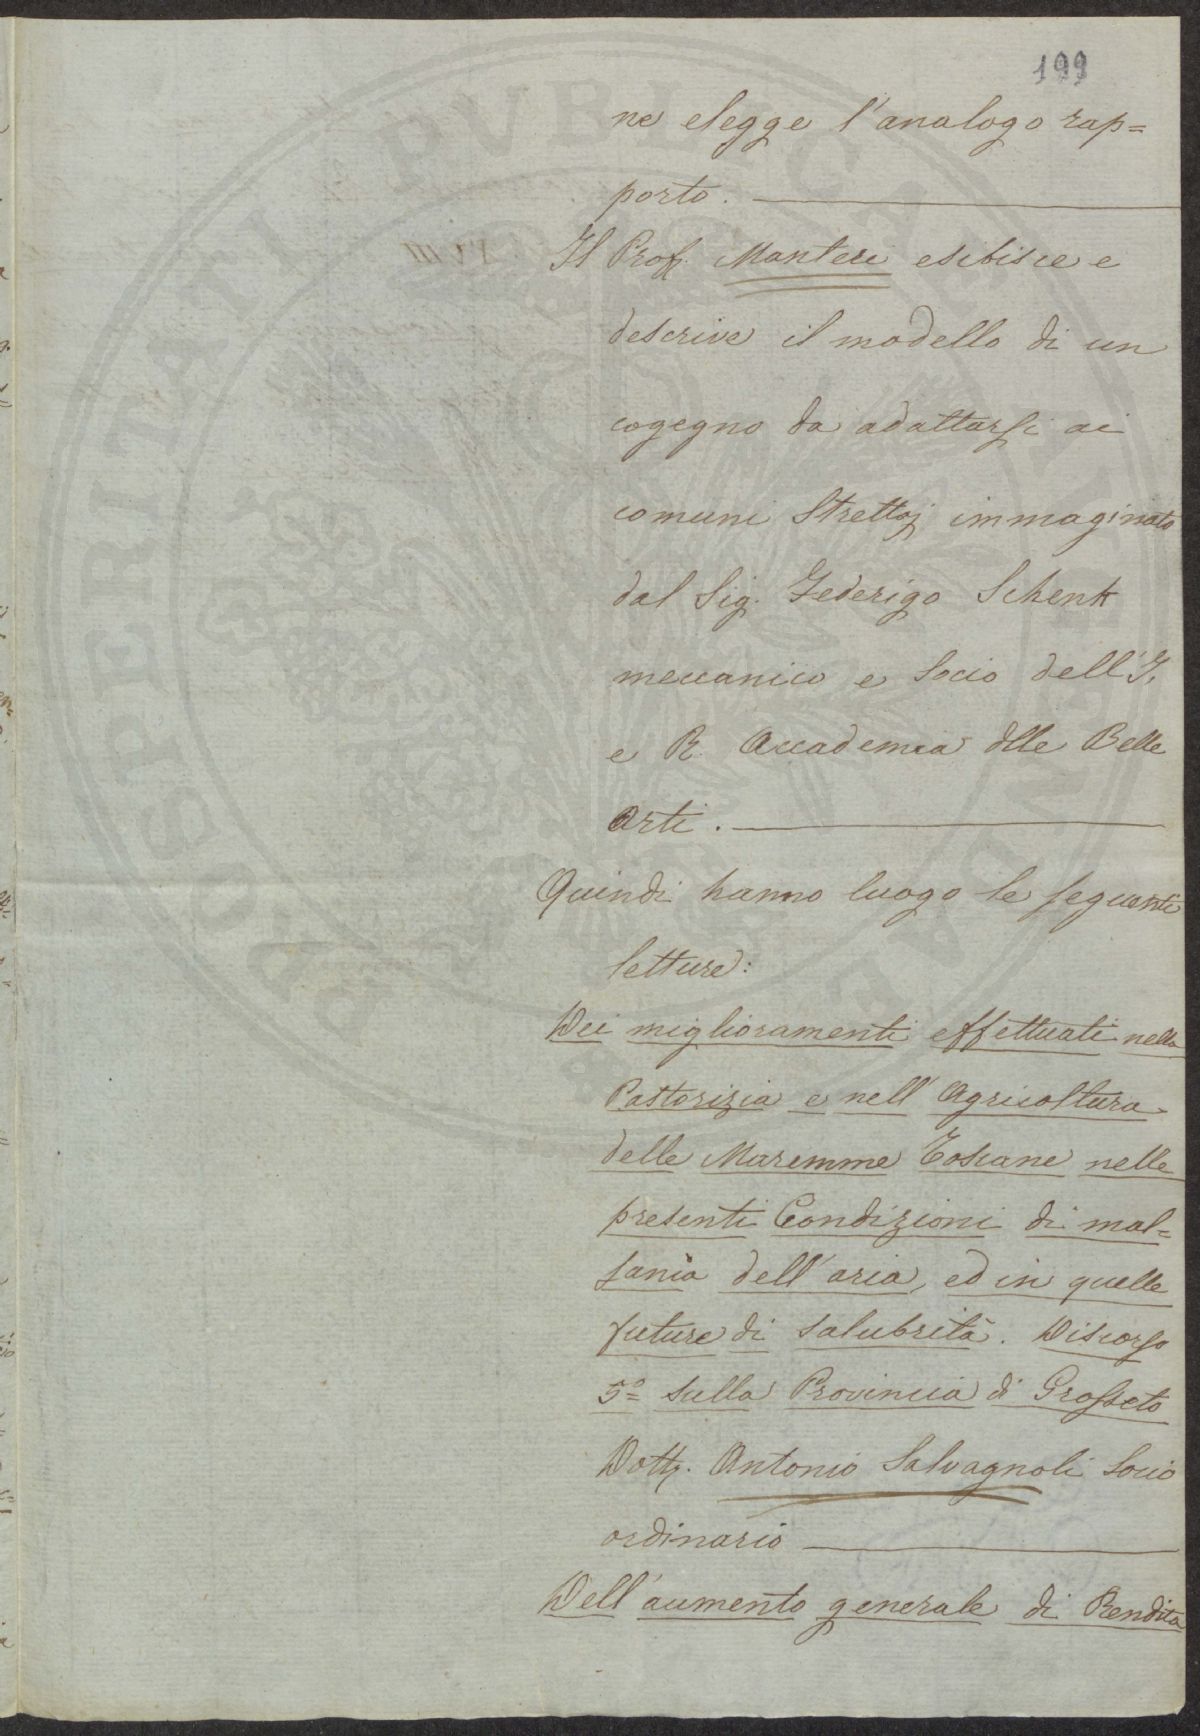 199
ne elegge l'analogo rap=
porto.
Il Prof. Manteri esibisce e
descrive il modello di un
cogegno da adattarsi ai
comuni Strettoj immaginato
dal Sig. Federigo Schenk
meccanico e Socio dell'I.
e R. Accademia dlle Belle
Arti.
Quindi hanno luogo le seguenti
letture:
Dei miglioramenti effettuati nella
Pastorizia e nell'Agricoltura
delle Maremme Toscane nelle
presenti Condizioni di mal=
sania dell'aria, ed in quelle
future di salubrità. Discorso
5º sulla Provincia di Grosseto
Dottr. Antonio Salvagnoli Socio
ordinario
Dell'aumento generale di Rendita
PROSPERITATI PVBLICAE AVGENDAE